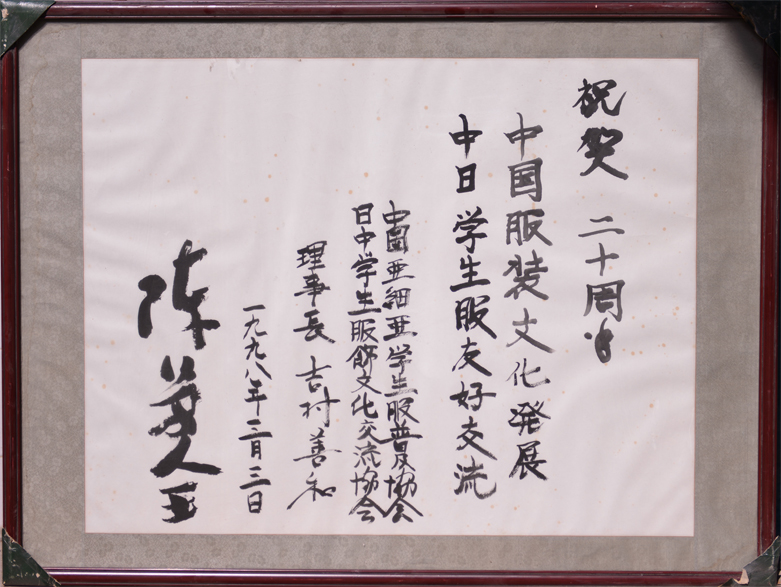 祝贺 二十周年
中国服装文化発展
中日学生服友好交流
中国亜細亜学生服普及協会
日中学生服飾文化交流協会
理事長 吉村善和
一九九八年二月三日
陈